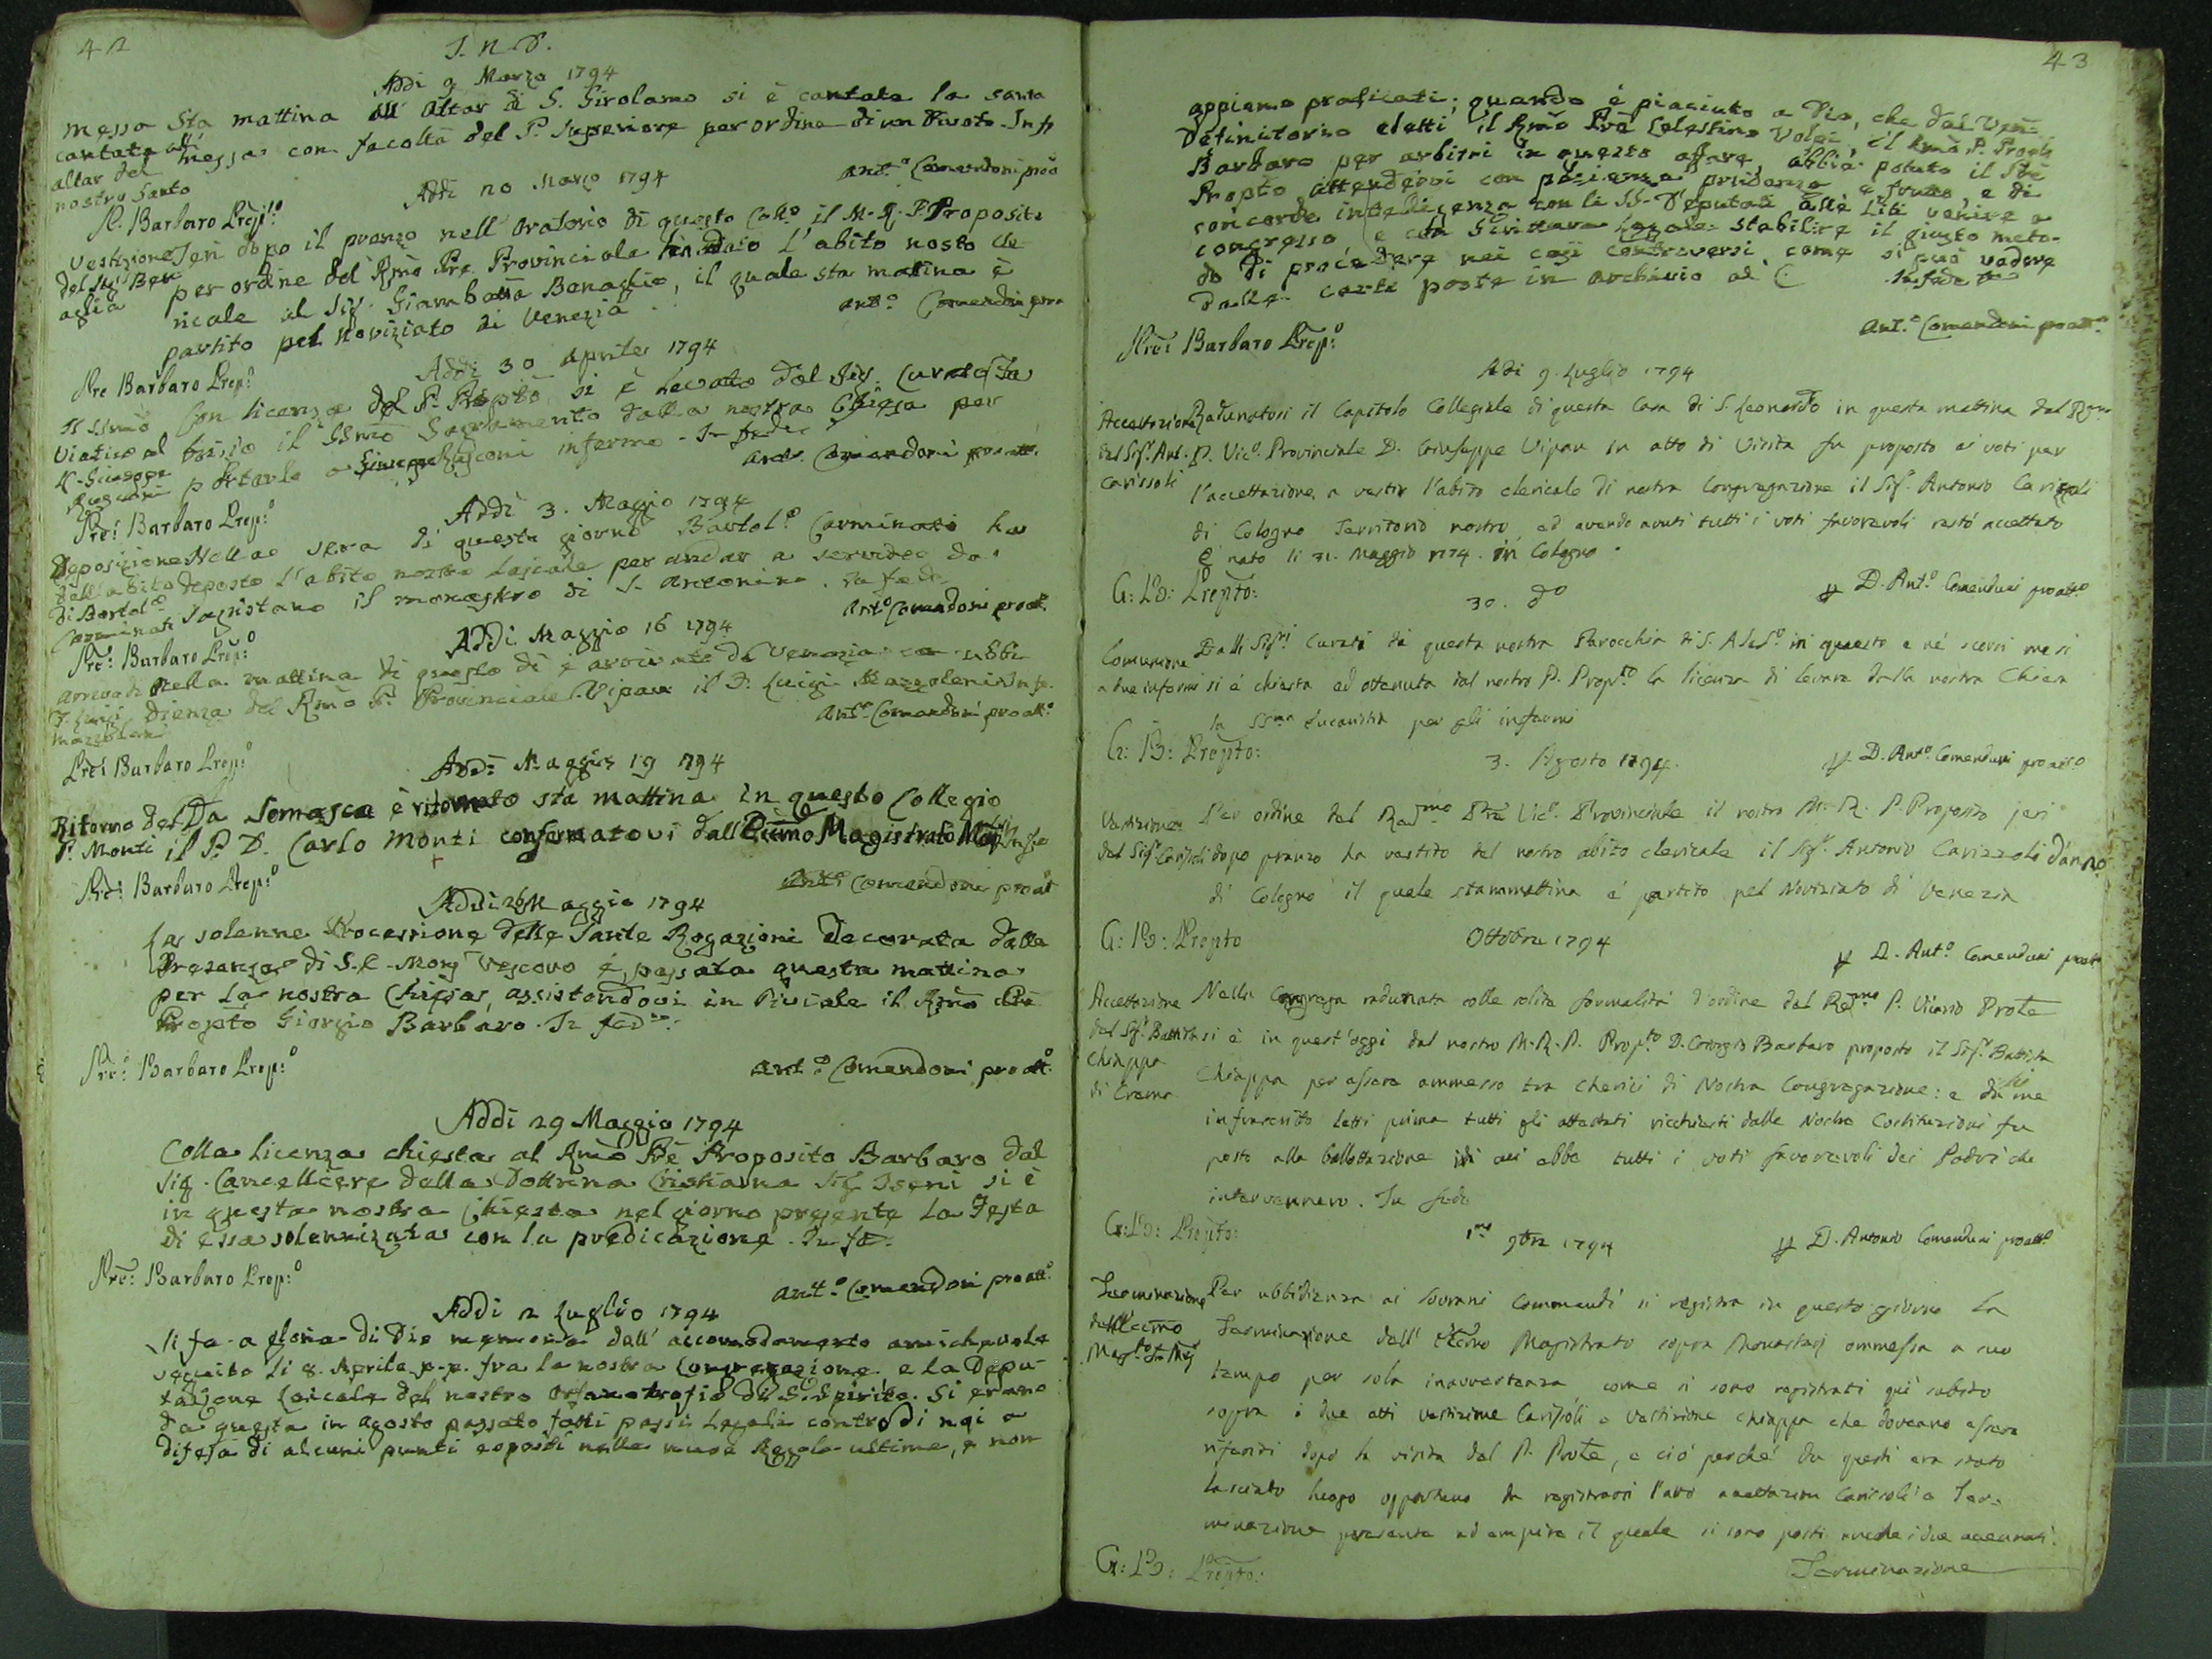 42
I. N. D.
Addi 9 Marzo 1794
Messa Sta mattina all' Altar di S. Girolamo si è cantata la santa
cantata all' messa con facoltà del P. Superiore per ordine di un Divoto. In f
altar del
nostro Santo
Ant.o Comendoni pro
P. Barbaro Prep.o
Addi 20 Marzo 1794
Vestizione Jeri dopo il pranzo nell' oratorio di questo Coll.o il M. R. P. Proposito
del Sig. Ben per ordine del Rmo Pre Provinciale ha dato l' abito nostro cle
aglia ricale al Sig. Giambatta Benaglia, il quale sta mattina è
partito pel Noviziato di Venezia
Ant.o Comendoni pro
Pre Barbaro Prep.o
Addi 30 Aprile 1794
Il SSmo Con licenza del P. Propto si è levato dal Sig. Curato
Viatico al il SSmo Sagramento dalla nostra Chiesa per
Giuseppe portarlo a Giuseppe Rusconi infermo. In fede
Rusconi
Ant.o Comendoni pro att.
Pre: Barbaro Prep.o
Addi 3. Maggio 1794
Deposizione Nella sera di questo giorno Bartol.o Carminati ha
dell' abito deposto l' abito nostro laicale per andar a servire da
di Bartol.o sagristano il monastero di S. Antonino. In fede
Carminati
Ant.o Comendoni proatt.
Pre: Barbaro Prep.o
Addi Maggio 16 1794
Arrivo di Nella mattina di questo di è arrivato da Venezia con ubbi
P. Luigi dienza del Rmo P. Provinciale Vipau il P. Luigi Mazzoleni. In fe.
Mazzoleni
Ant.o Comendoni proatt.o
Pre: Barbaro Prep.o
Addi Maggio 19 1794
Ritorno del Da Somasca è ritornato sta mattina in questo Collegio
P. Monti il P. D. Carlo Monti confermatovi dall' Eccmo Magistrato In fe
Pre: Barbaro Prep.o
Ant.o Comendoni proatt
Addi 26 Maggio 1794
La solenne Processione delle Sante Rogazioni decorata dalla
Presenza di S. E. Mons Vescovo è passata questa mattina
per la nostra Chiesa, assistendovi in Piviale il Rmo Pre
Propto Giorgio Barbaro. In fed
Pre: Barbaro Prep.o
Ant.o Comendoni proatt.o
Addi 29 Maggio 1794
Colla licenza chiesta al Rmo Pre Proposito Barbaro dal
Sig. Cancelliere della Dottrina Cristiana Sig. Iseni si è
in questa nostra Chiesa nel giorno presente la Festa
di essa solennizata con la predicazione. In fe.
Pre: Barbaro Prep.o
Ant.o Comendoni proatt.o
Addi 2 Luglio 1794
Si fa a gloria di Dio memoria dell' accomodamento amichevole
seguito li 8. Aprile p. p. fra la nostra Congregazione e la Depu-
tazione Laicale del nostro Orfanotrofio di S. Spirito. Si erano
da questa in Agosto passato fatti passi Legali contro di noi a
difesa di alcuni punti esposti nelle nuove Regole ultime, e non
43
appieno praticati; quando è piaciuto a Dio, che dal Ven
Definitorio eletti il Rmo Pre Celestino Volpi, il Rmo P. Propto
Barbaro per arbitri in questo affare, abbia potuto il
Propto attendervi con pazienza prudenza e frutto, e di
concorde intelligenza con li SS. Deputati alle Liti venire a
congresso e con Scrittura Legale stabilire il giusto meto-
do di procedere nei casi controversi, come si può vedere
dalle carte poste in archivio al C
In fede
Ant.o Comendoni proatt.o
Pre: Barbaro Prep.o
Adi 9. Luglio 1794
Accettazione Radunatosi il Capitolo Collegiale di questa Casa di S. Leonardo in questa mattina dal Rmo
del Sig.r Ant. P. Vic.o Provinciale D. Giuseppe Vipau in atto di Visita fu proposto a' voti per
Carissoli l' accettazione a vestir l' abito clericale di nostra Congregazione il Sig.r Antonio Carissoli
di Cologno Territorio nostro, ed avendo avuti tutti i voti favorevoli restò accettato
È nato li 21. Maggio 1774. in Cologno.
G: B: Propto:
D. Ant.o Comenduni proatt.o
30. d.o
Comunione Dalli Sig.ri Curati di questa nostra Parocchia di S. Aless.o in questo e ne' scorsi mesi
a due infermi si è chiesta ed ottenuta dal nostro P. Prop.to la licenza di levare dalla nostra Chiesa
la SSma Eucaristia per gli infermi
G: B: Propto:
D. Ant.o Comenduni proatt.o
3. Agosto 1794.
Vestizione Per ordine del Rev.mo Pre Vic.o Provinciale il nostro M. R. P. Proposito jeri
del Sig.r Carissoli dopo pranzo ha vestito del nostro abito clericale il Sig.r Antonio Carizzoli
di Cologno il quale stammattina è partito pel Noviziato di Venezia
G: B: Propto
D. Ant.o Comenduni proatt
Ottobre 1794
Accettazione Nella Congrega radunata colle solite formalità d' ordine del Re.mo P. Vicario Prole
del Sig.r Battista si è in quest' oggi dal nostro M. R. P. Prop.to D. Giorgio Barbaro proposto il Sig.r Battista
Chiappa Chiappa per essere ammesso tra cherici di Nostra Congregazione: e da me
di Crema infrascritto letti prima tutti gli attestati ricchiesti dalle Nostre Costituzioni fu
posto alla ballottazione ed ebbe tutti i voti favorevoli dei Padri che
intervennero. In fede
G: B: Propto:
D. Antonio Comenduni proatt.o
1.mo 9bre 1794
Terminazione Per ubbidienza ai Sovrani Commandi si registra in questo giorno la
dell' Eccmo Terminazione dell' Eccmo Magistrato sopra Monasterj ommessa a suo
tempo per sola inavvertenza come si sono registrati quì subito
sopra i due atti vestizione Carissoli e vestizione Chiappa che doveano essere
riferiti dopo la visita del P. Prole, e ciò perchè da questi era stato
lasciato luogo opportuno da registrarsi l' atto accettazion Carissoli e Ter-
minazione presente ad empire il quale si sono posti anche i due accennati.
G: B: Propto:
Terminazione